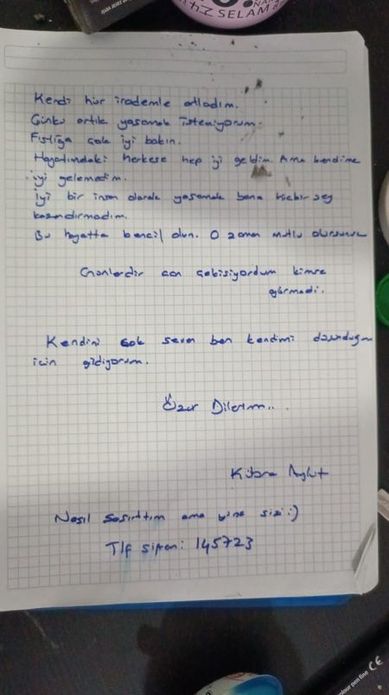 SELAM
Kendi hür irademle atladım.
Çünkü artık yaşamak istemiyorum.
Fıstığa çok iyi bakın.
Hayatımdaki herkese hep iyi geldim. Ama kendime
iyi gelemedim.
İyi bir insan olarak yaşamak bana hiçbir şey
kazandırmadım.
Bu hayatta bencil olun. O zaman mutlu olursunuz
Günlerdir can çekişiyordum kimse
görmedi.
Kendini çok seven ben kendimi
için gidiyorum.
Özür Dilerim..
Kübra
Nasıl şaşırttım ama yine sizi :)
Tlf şifrem: 145723